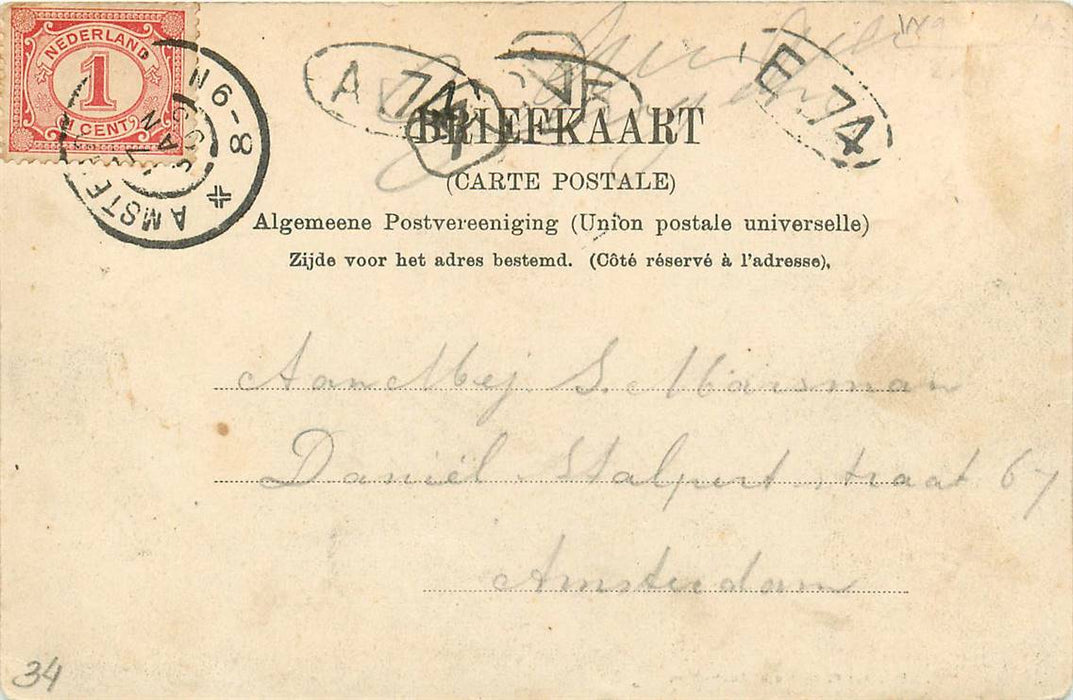 NEDERLAND
1
1 CENT
AMSTE
8-9N
JAN
A 74
E 74
BRIEFKAART
(CARTE POSTALE)
Algemeene Postvereeniging (Union postale universelle)
Zijde voor het adres bestemd. (Côté réservé à l'adresse),
Aan Mej. S. Marsman
Daniël Stalpert straat 67
Amsterdam
34